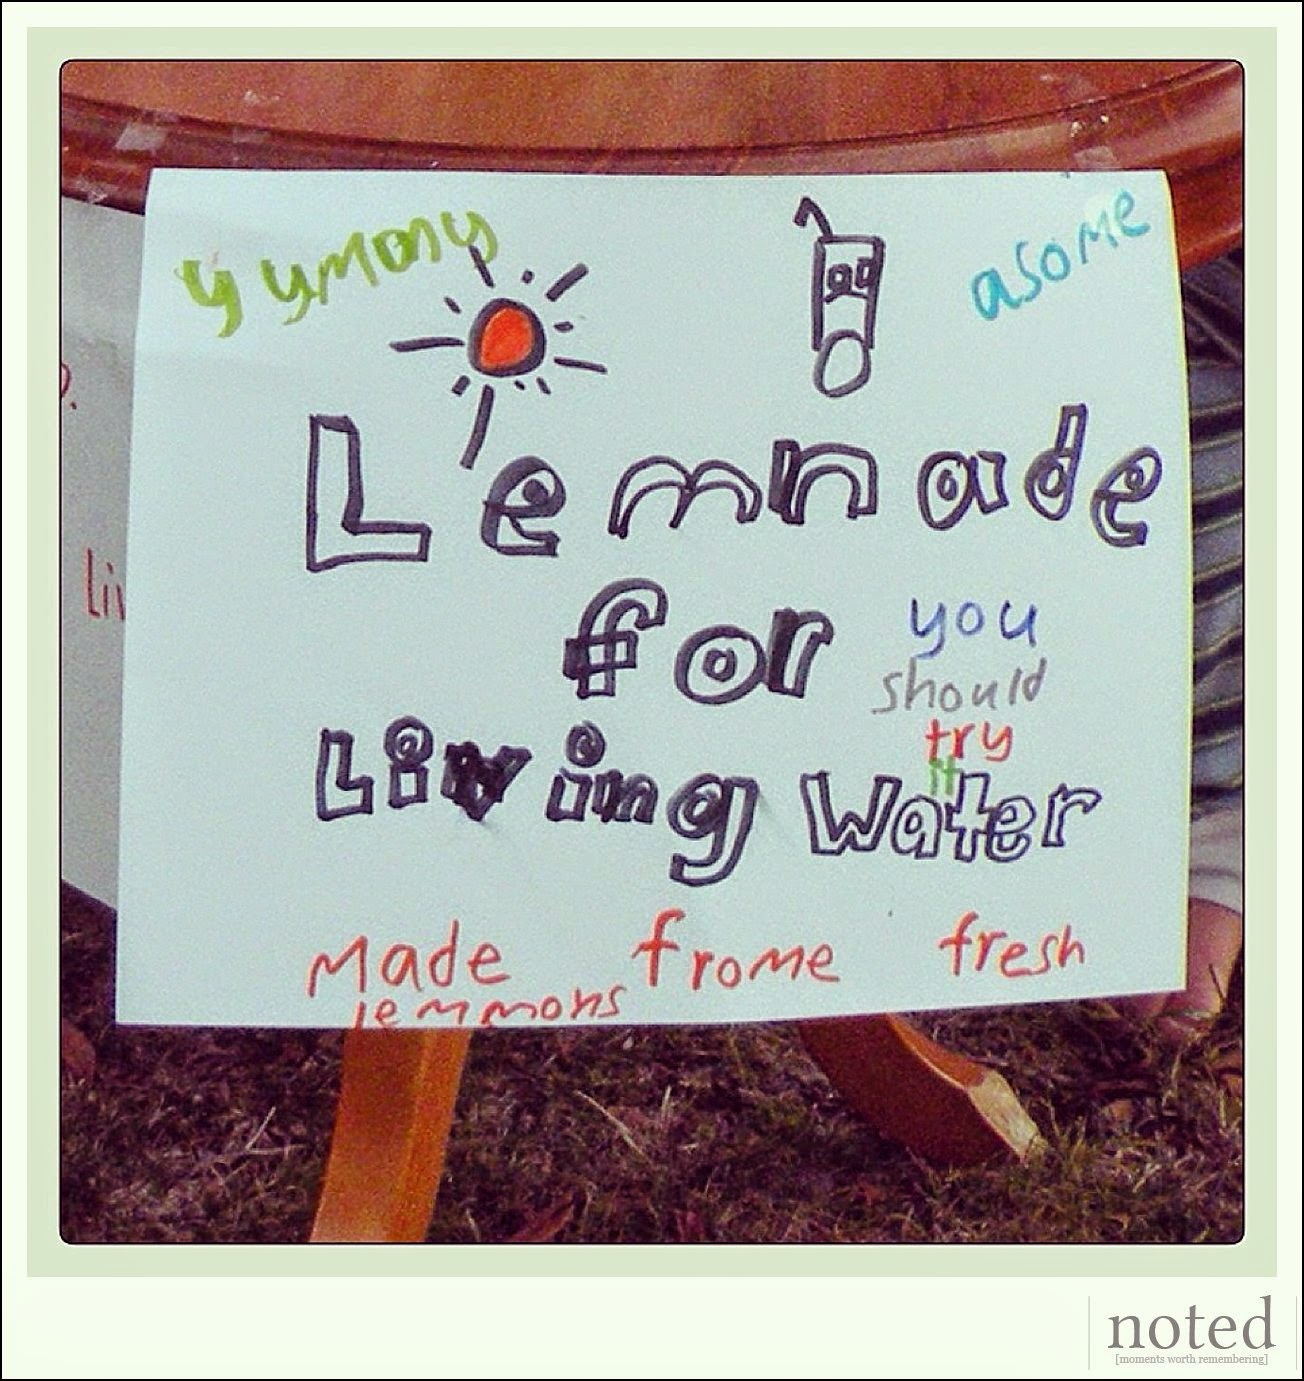 yymony
asome
Lemnade
for
you
should
try
it
Living Water
Made frome fresh
lemmons
liv
noted
[moments worth remembering]